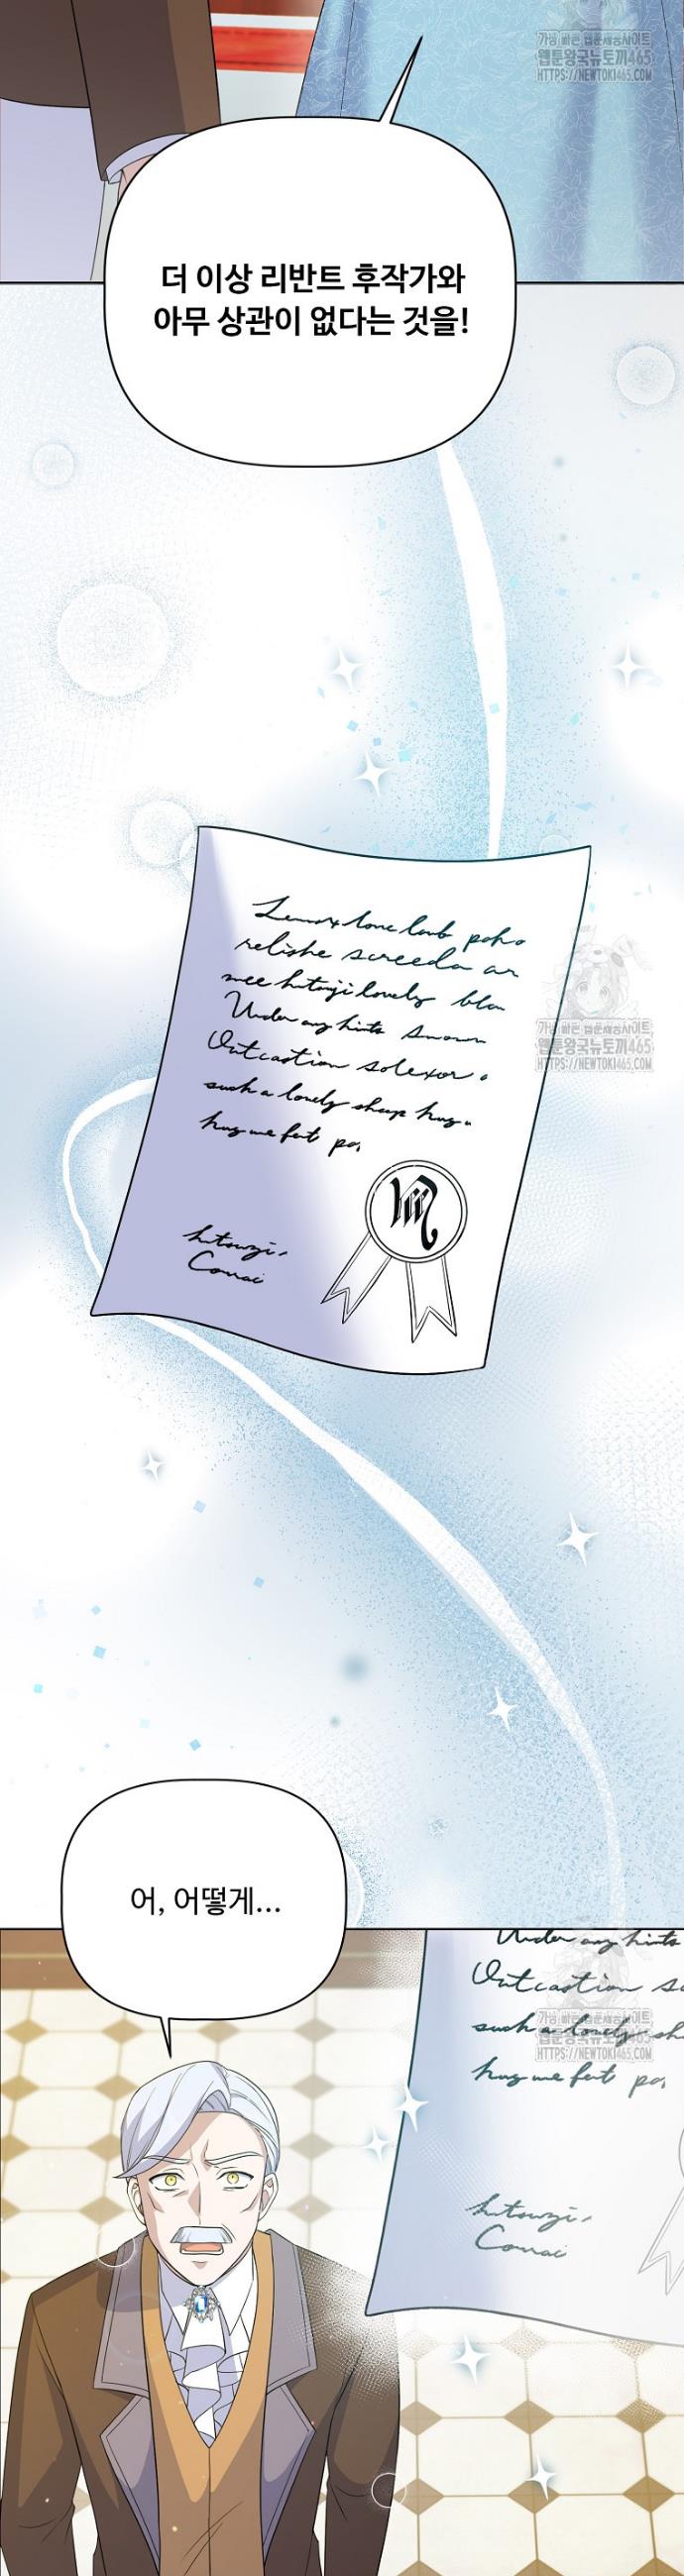 가장 빠른 웹툰제공사이트
웹툰왕국뉴토끼465
HTTPS://NEWTOKI465.COM
더 이상 리반트 후작가와
아무 상관이 없다는 것을!
relishe screeda an
lovely
Under any hints
가장 빠른 웹툰제공사이트
웹툰왕국뉴토끼465
HTTPS://NEWTOKI465.COM
Outcastion solexor
such a lonely sheep hug
hug me feit po,
어, 어떻게...
Under any hints
Outcastion
such a lonely sh
가장 빠른 웹툰제공사이트
웹툰왕국뉴토끼465
HTTPS://NEWTOKI465.COM
hug me feit po,